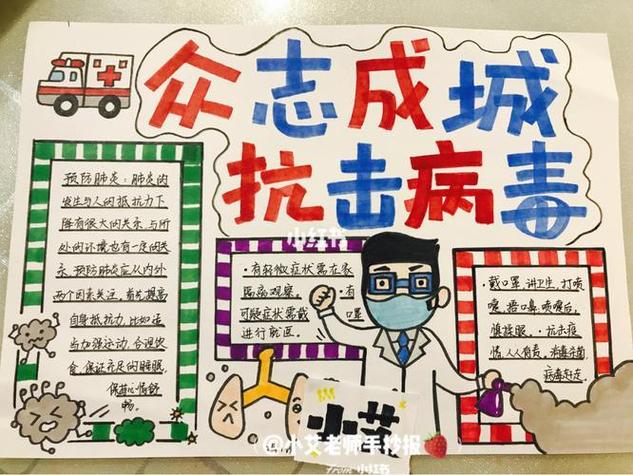 众志成城
抗击病毒
预防肺炎:肺炎的
发生与人的抵抗力下
降有很大的关系,与所
处的环境也有一定的关
系,预防肺炎应从内外
两个因素关注,首先提高
自身抵抗力,比如适
当加强运动,合理饮
食,保证充足的睡眠,
保持心情舒
畅。
小红书
·有轻微症状需在家
隔离观察。·有
可疑症状需戴口罩
进行就医。
·戴口罩,讲卫生,打喷
嚏,捂口鼻,喷嚏后,
慎揉眼。·抗击疫
情,人人有责,消毒杀菌
病毒赶走。
小艾
@小艾老师手抄报
from 小红书